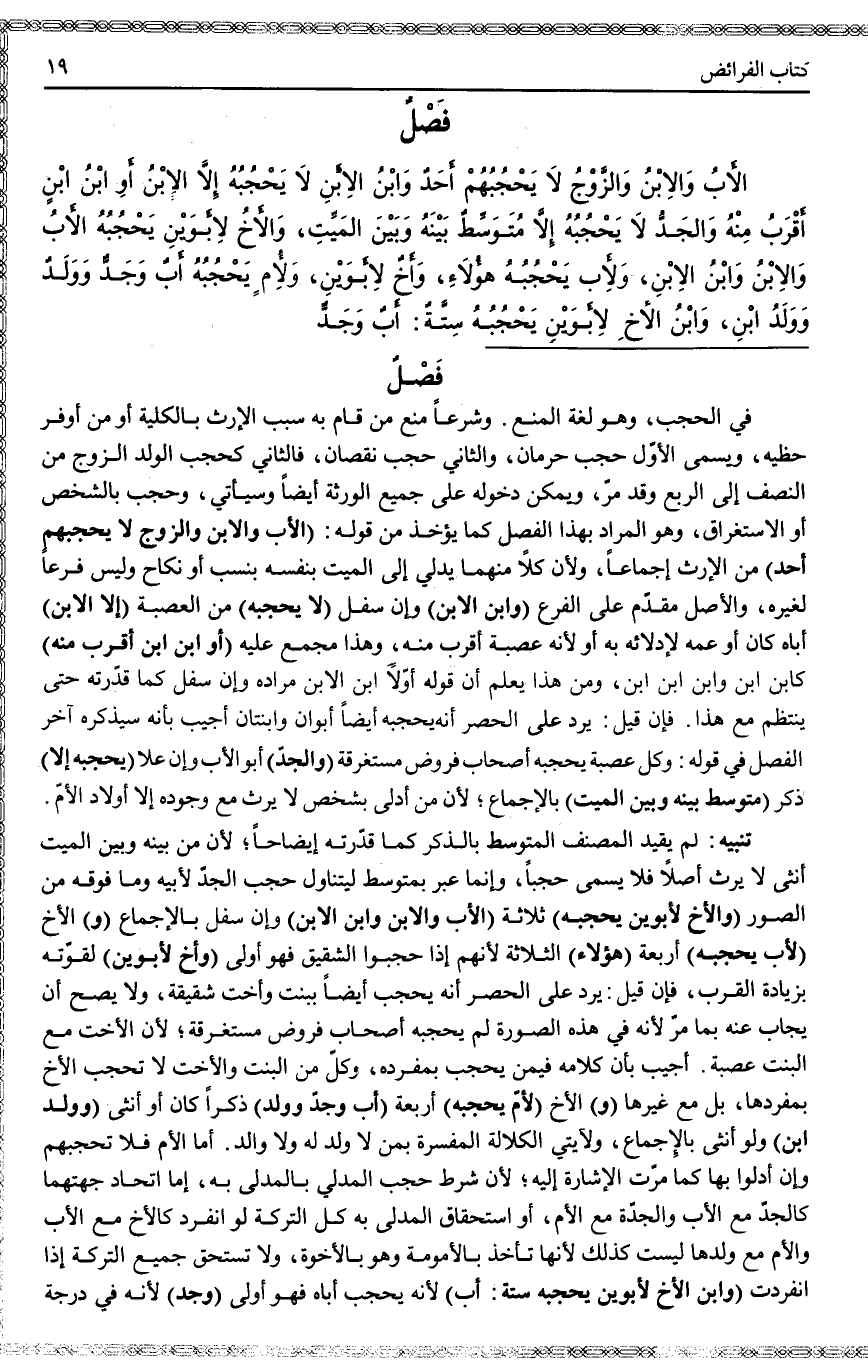 كتاب الفرائض
١٩
فَصْلٌ
الأَبُ وَالِابْنُ وَالزَّوْجُ لَا يَحْجُبُهُمْ أَحَدٌ وَابْنُ الِابْنِ لَا يَحْجُبُهُ إِلَّا الِابْنُ أَوِ ابْنُ ابْنٍ
أَقْرَبُ مِنْهُ وَالجَدُّ لَا يَحْجُبُهُ إِلَّا مُتَوَسِّطٌ بَيْنَهُ وَبَيْنَ المَيِّتِ، وَالأَخُ لِأَبَوَيْنِ يَحْجُبُهُ الأَبُ
وَالِابْنُ وَابْنُ الِابْنِ، وَلِأَب يَحْجُبُهُ هؤُلَاءِ، وَأَخٌ لِأَبَوَيْنِ، وَلِأُمٍ يَحْجُبُهُ أَبٌ وَجَدٌّ وَوَلَدٌ
وَوَلَدُ ابْنِ، وَابْنُ الأَخِ لِأَبَوَيْنِ يَحْجُبُهُ سِتَّةٌ: أَبٌ وَجَدٌّ
فَصْلٌ
في الحجب، وهو لغة المنع. وشرعاً منع من قام به سبب الإرث بالكلية أو من أوفر
حظيه، ويسمى الأوّل حجب حرمان، والثاني حجب نقصان، فالثاني كحجب الولد الزوج من
النصف إلى الربع وقد مرّ، ويمكن دخوله على جميع الورثة أيضاً وسيأتي، وحجب بالشخص
أو الاستغراق، وهو المراد بهذا الفصل كما يؤخذ من قوله: (الأب والابن والزوج لا يحجبهم
أحد) من الإرث إجماعاً، ولأن كلاً منهما يدلي إلى الميت بنفسه بنسب أو نكاح وليس فرعاً
لغيره، والأصل مقدّم على الفرع (وابن الابن) وإن سفل (لا يحجبه) من العصبة (إلا الابن)
أباه كان أو عمه لإدلائه به أو لأنه عصبة أقرب منه، وهذا مجمع عليه (أو ابن ابن أقرب منه)
كابن ابن وابن ابن ابن، ومن هذا يعلم أن قوله أوّلاً ابن الابن مراده وإن سفل كما قدّرته حتى
ينتظم مع هذا. فإن قيل: يرد على الحصر أنه يحجبه أيضاً أبوان وابنتان أجيب بأنه سيذكره آخر
الفصل في قوله: وكل عصبة يحجبه أصحاب فروض مستغرقة (والجدّ) أبو الأب وإن علا (يحجبه إلا)
ذكر (متوسط بينه وبين الميت) بالإجماع؛ لأن من أدلى بشخص لا يرث مع وجوده إلا أولاد الأمّ.
تنبيه: لم يقيد المصنف المتوسط بالذكر كما قدّرته إيضاحاً؛ لأن من بينه وبين الميت
أنثى لا يرث أصلاً فلا يسمى حجباً، وإنما عبر بمتوسط ليتناول حجب الجدّ لأبيه وما فوقه من
الصور (والأخ لأبوين يحجبه) ثلاثة (الأب والابن وابن الابن) وإن سفل بالإجماع (و) الأخ
(لأب يحجبه) أربعة (هؤلاء) الثلاثة لأنهم إذا حجبوا الشقيق فهو أولى (وأخ لأبوين) لقوّته
بزيادة القرب، فإن قيل: يرد على الحصر أنه يحجب أيضاً ببنت وأخت شقيقة، ولا يصح أن
يجاب عنه بما مرّ لأنه في هذه الصورة لم يحجبه أصحاب فروض مستغرقة؛ لأن الأخت مع
البنت عصبة. أجيب بأن كلامه فيمن يحجب بمفرده، وكلّ من البنت والأخت لا تحجب الأخ
بمفردها، بل مع غيرها (و) الأخ (لأمّ يحجبه) أربعة (أب وجدّ وولد) ذكراً كان أو أنثى (وولد
ابن) ولو أنثى بالإجماع، ولآيتي الكلالة المفسرة بمن لا ولد له ولا والد. أما الأم فلا تحجبهم
وإن أدلوا بها كما مرّت الإشارة إليه؛ لأن شرط حجب المدلي بالمدلى به، إما اتحاد جهتهما
كالجدّ مع الأب والجدّة مع الأم، أو استحقاق المدلى به كل التركة لو انفرد كالأخ مع الأب
والأم مع ولدها ليست كذلك لأنها تأخذ بالأمومة وهو بالأخوة، ولا تستحق جميع التركة إذا
انفردت (وابن الأخ لأبوين يحجبه ستة: أب) لأنه يحجب أباه فهو أولى (وجد) لأنه في درجة